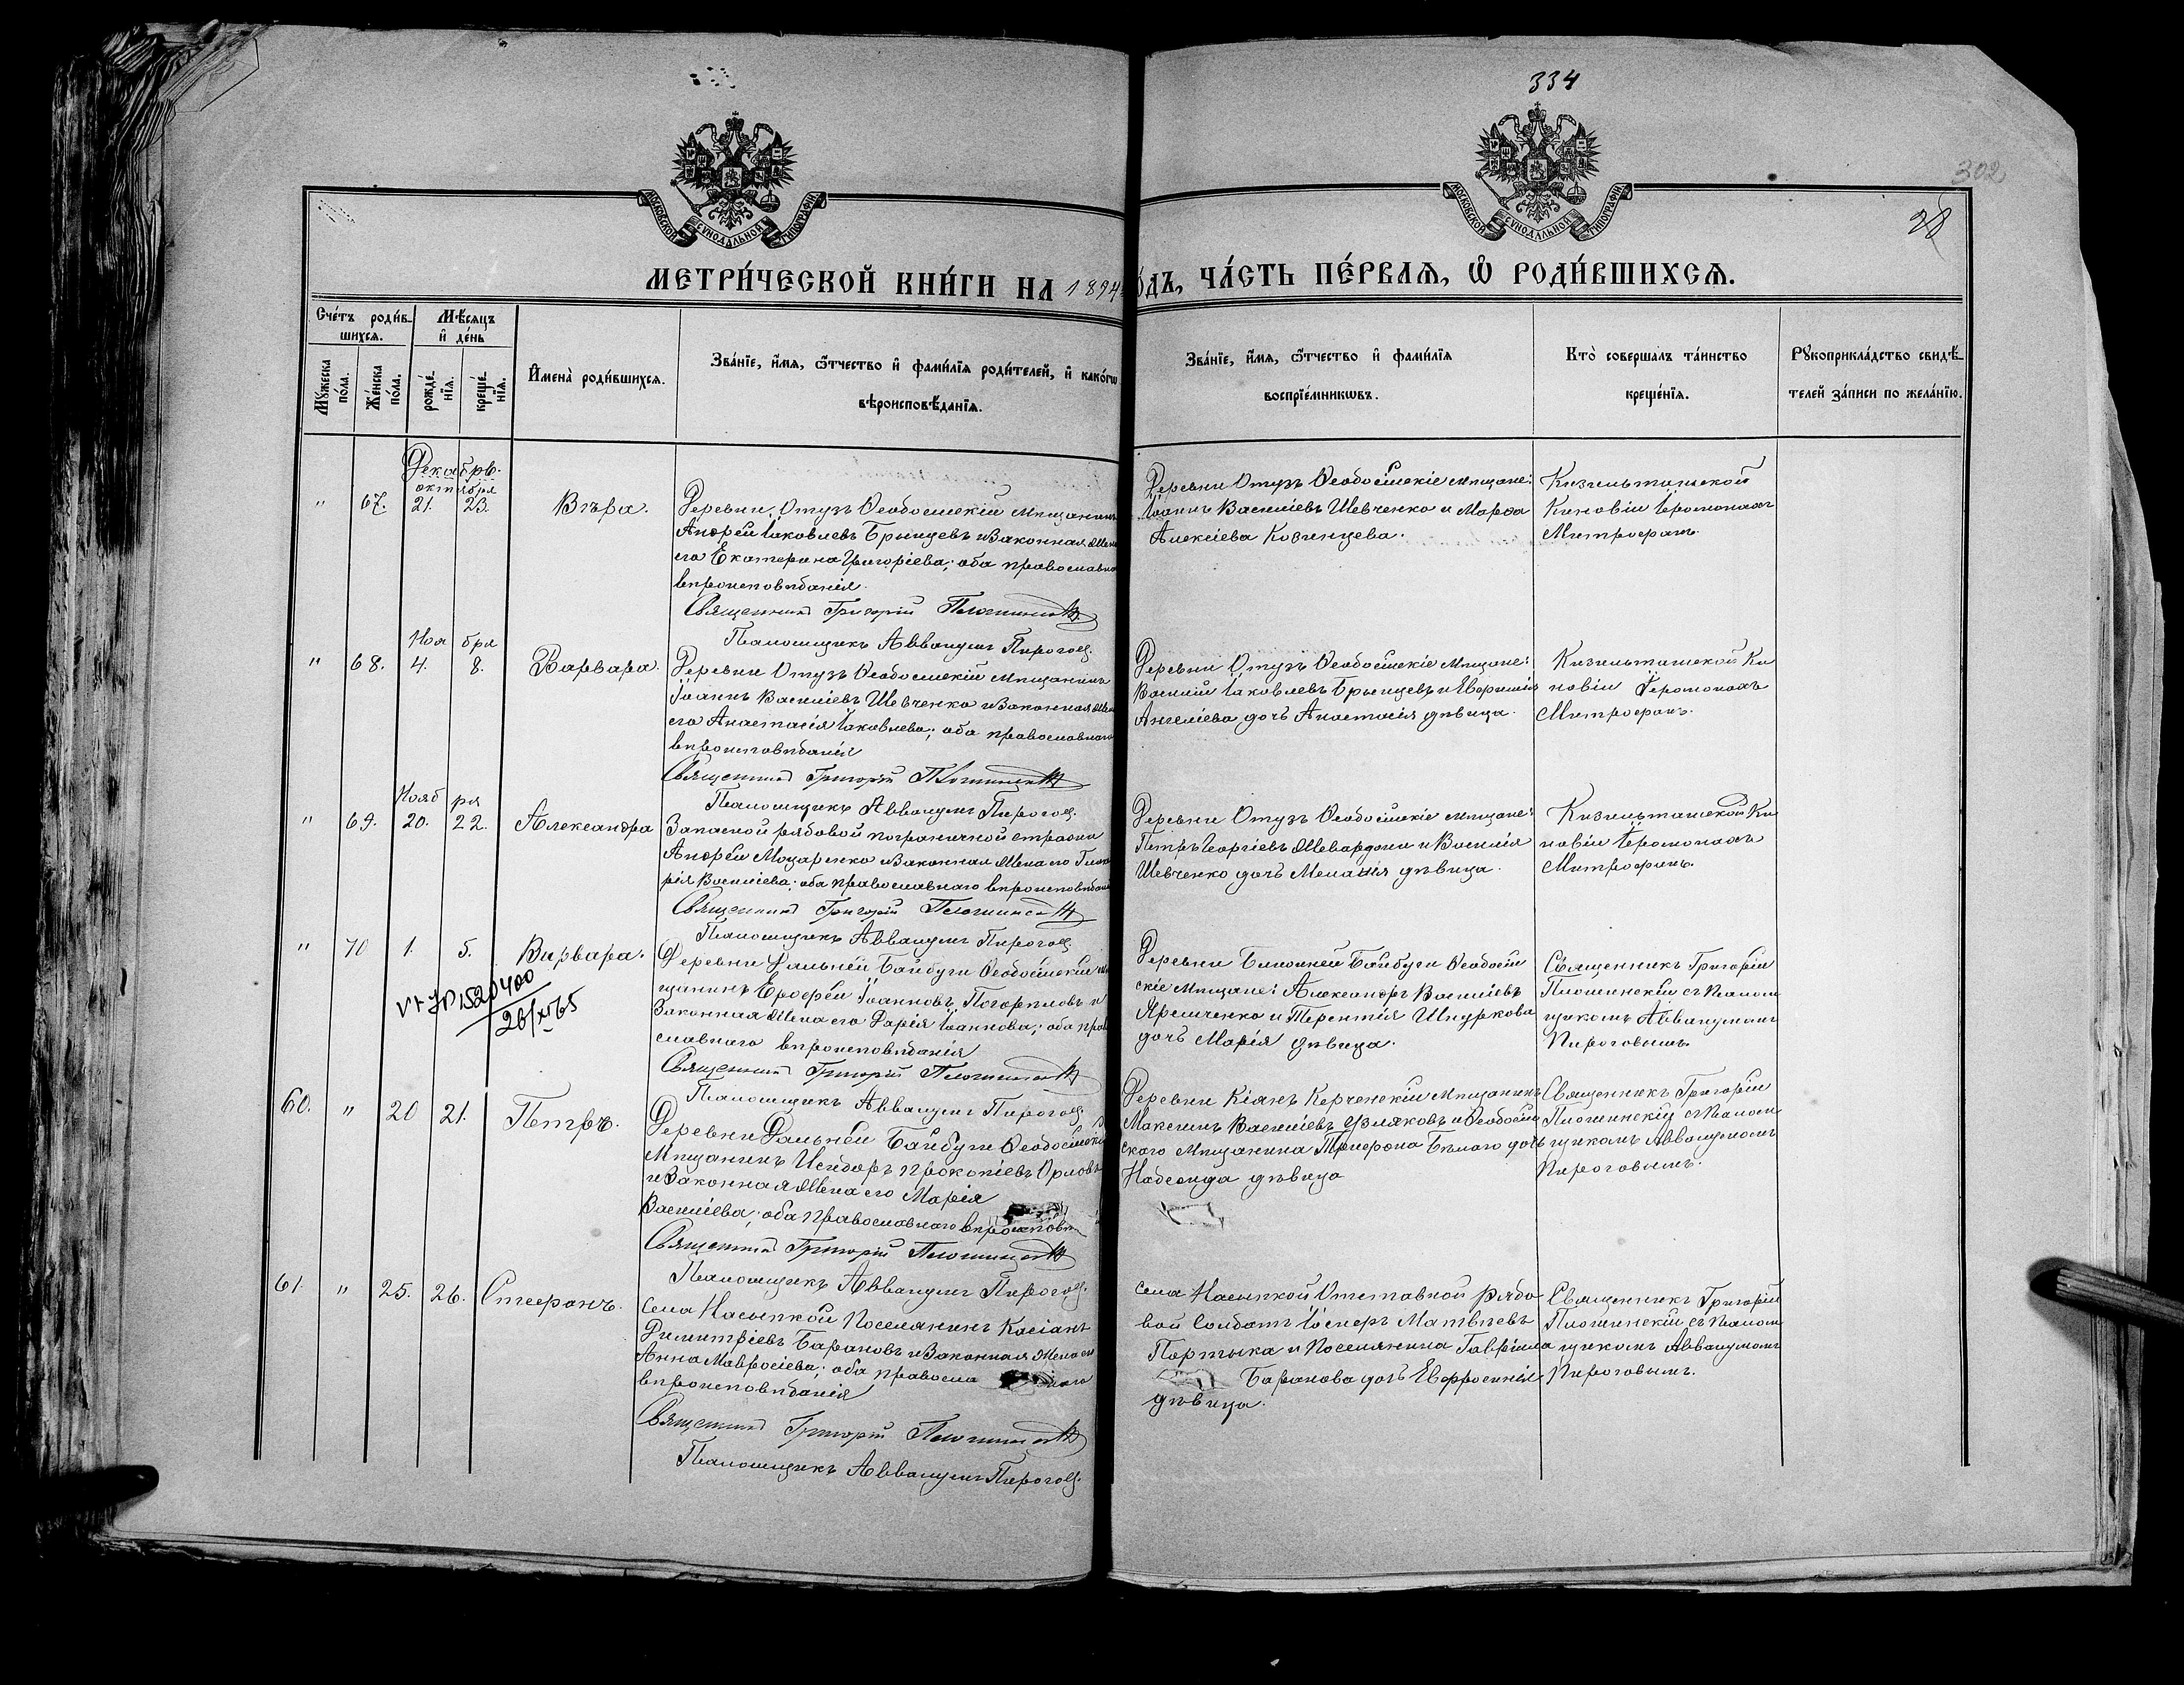 334
302
28
МОСКОВСКОЙ СѴНОДАЛЬНОЙ ТИПОГРАФІИ
МОСКОВСКОЙ СѴНОДАЛЬНОЙ ТИПОГРАФІИ
МЕТРИ́ЧЕСКОЙ КНИ́ГИ НА 1894 ГО́ДЪ, ЧА́СТЬ ПЕ́РВАѦ, Ѡ РОДИ́ВШИХСѦ.
Сче́тъ роди́в-
шихсѧ.
Мѣсѧцъ
и де́нь
Мꙋжеска
по́ла.
Же́нска
по́ла.
рожде́-
нїѧ.
креще́-
нїѧ.
И҆мена̀ роди́вшихсѧ.
Зва́нїе, и҆́мѧ, ѻ҆́тчество и҆ фами́лїѧ роди́телей, и҆ како́гѡ
вѣроисповѣ́данїѧ.
Зва́нїе, и҆́мѧ, ѻ҆́тчество и҆ фами́лїѧ
воспрїе́мникѡвъ.
Кто̀ соверша́лъ та́инство
креще́нїѧ.
Рꙋкоприкла́дство свидѣ́-
телей за́писи по жела́нїю.
Декабрь.
октября
" 67. 21. 23. Вѣра.
Деревни Отузъ Ѳеодосійскій мѣщанинъ
Андрей Іаковлевъ Брынцевъ и Законная Жена
его Екатерина Григоріева; оба православнаго
вѣроисповѣданія.
Священникъ Григорій
Псаломщикъ Аввакумъ Пироговъ.
Деревни Отузъ Ѳеодосійскіе мѣщане:
Іоаннъ Василіевъ Шевченко и Марѳа
Алексіева
Кизильташской
Киновіи Іеромонахъ
Митрофанъ.
Ноя бря
" 68. 4. 8. Варвара.
Деревни Отузъ Ѳеодосійскій мѣщанинъ
Іоаннъ Василіевъ Шевченко и Законная Жена
его Анастасія Іаковлева; оба православнаго
вѣроисповѣданія
Священникъ Григорій
Псаломщикъ Аввакумъ Пироговъ.
Деревни Отузъ Ѳеодосійскіе мѣщане:
Василій Іаковлевъ Брынцевъ и
дочь Анастасія дѣвица.
Кизильташской Ки
новіи Іеромонахъ
Митрофанъ.
Нояб ря
" 69. 20. 22. Александра
Запасной рядовой пограничной стражи
Андрей Мацаренко и Законная Жена его Глике
рія Василіева; оба православнаго вѣроисповѣданія
Священникъ Григорій
Псаломщикъ Аввакумъ Пироговъ.
Деревни Отузъ Ѳеодосійскіе мѣщане:
Петръ Георгіевъ и Василія
Шевченко дочь Меланія дѣвица.
Кизильташской Ки
новіи Іеромонахъ
Митрофанъ.
" 70 1. 5. Варвара.
1520400
26/XI 65
Деревни Дальней Байбуги Ѳеодосійскій мѣ
щанинъ Ерофей Іоанновъ Погорѣловъ и
Законная Жена его Дарія Іоаннова; оба право
славнаго вѣроисповѣданія
Священникъ Григорій
Псаломщикъ Аввакумъ Пироговъ
Деревни Ближней Байбуги Ѳеодосій
скіе мѣщане: Александръ Василіевъ
Яремченко и Терентія Шкуркова
дочь Марія дѣвица.
Священникъ Григорій
съ псалом
щикомъ Аввакумомъ
Пироговымъ.
60. " 20 21. Петръ.
Деревни Дальней Байбуги Ѳеодосійскій
мѣщанинъ Исидоръ Прокопіевъ Орловъ
и Законная Жена его Марія
Василіева; оба православнаго вѣроисповѣ
Священникъ Григорій
Псаломщикъ Аввакумъ Пироговъ.
Деревни Кіянъ Керченскій мѣщанинъ
Максимъ Василіевъ и Ѳеодосій
скаго мѣщанина Трифона Бѣлаго дочь
Надежда дѣвица
Священникъ Григорій
съ псалом
щикомъ Аввакумомъ
Пироговымъ.
61. " 25. 26. Стефанъ.
Села Насыпкой Поселянинъ Касіанъ
Димитріевъ Барановъ и Законная Жена его
Анна оба правосла наго
вѣроисповѣданія
Священникъ Григорій
Псаломщикъ Аввакумъ Пироговъ.
Села Насыпкой Отставной рядо
вой Солдатъ Матвѣевъ
Портыка и Поселянина Гавріила
Баранова дочь Евфросинія
дѣвица.
Священникъ Григорій
съ псалом
щикомъ Аввакумомъ
Пироговымъ.